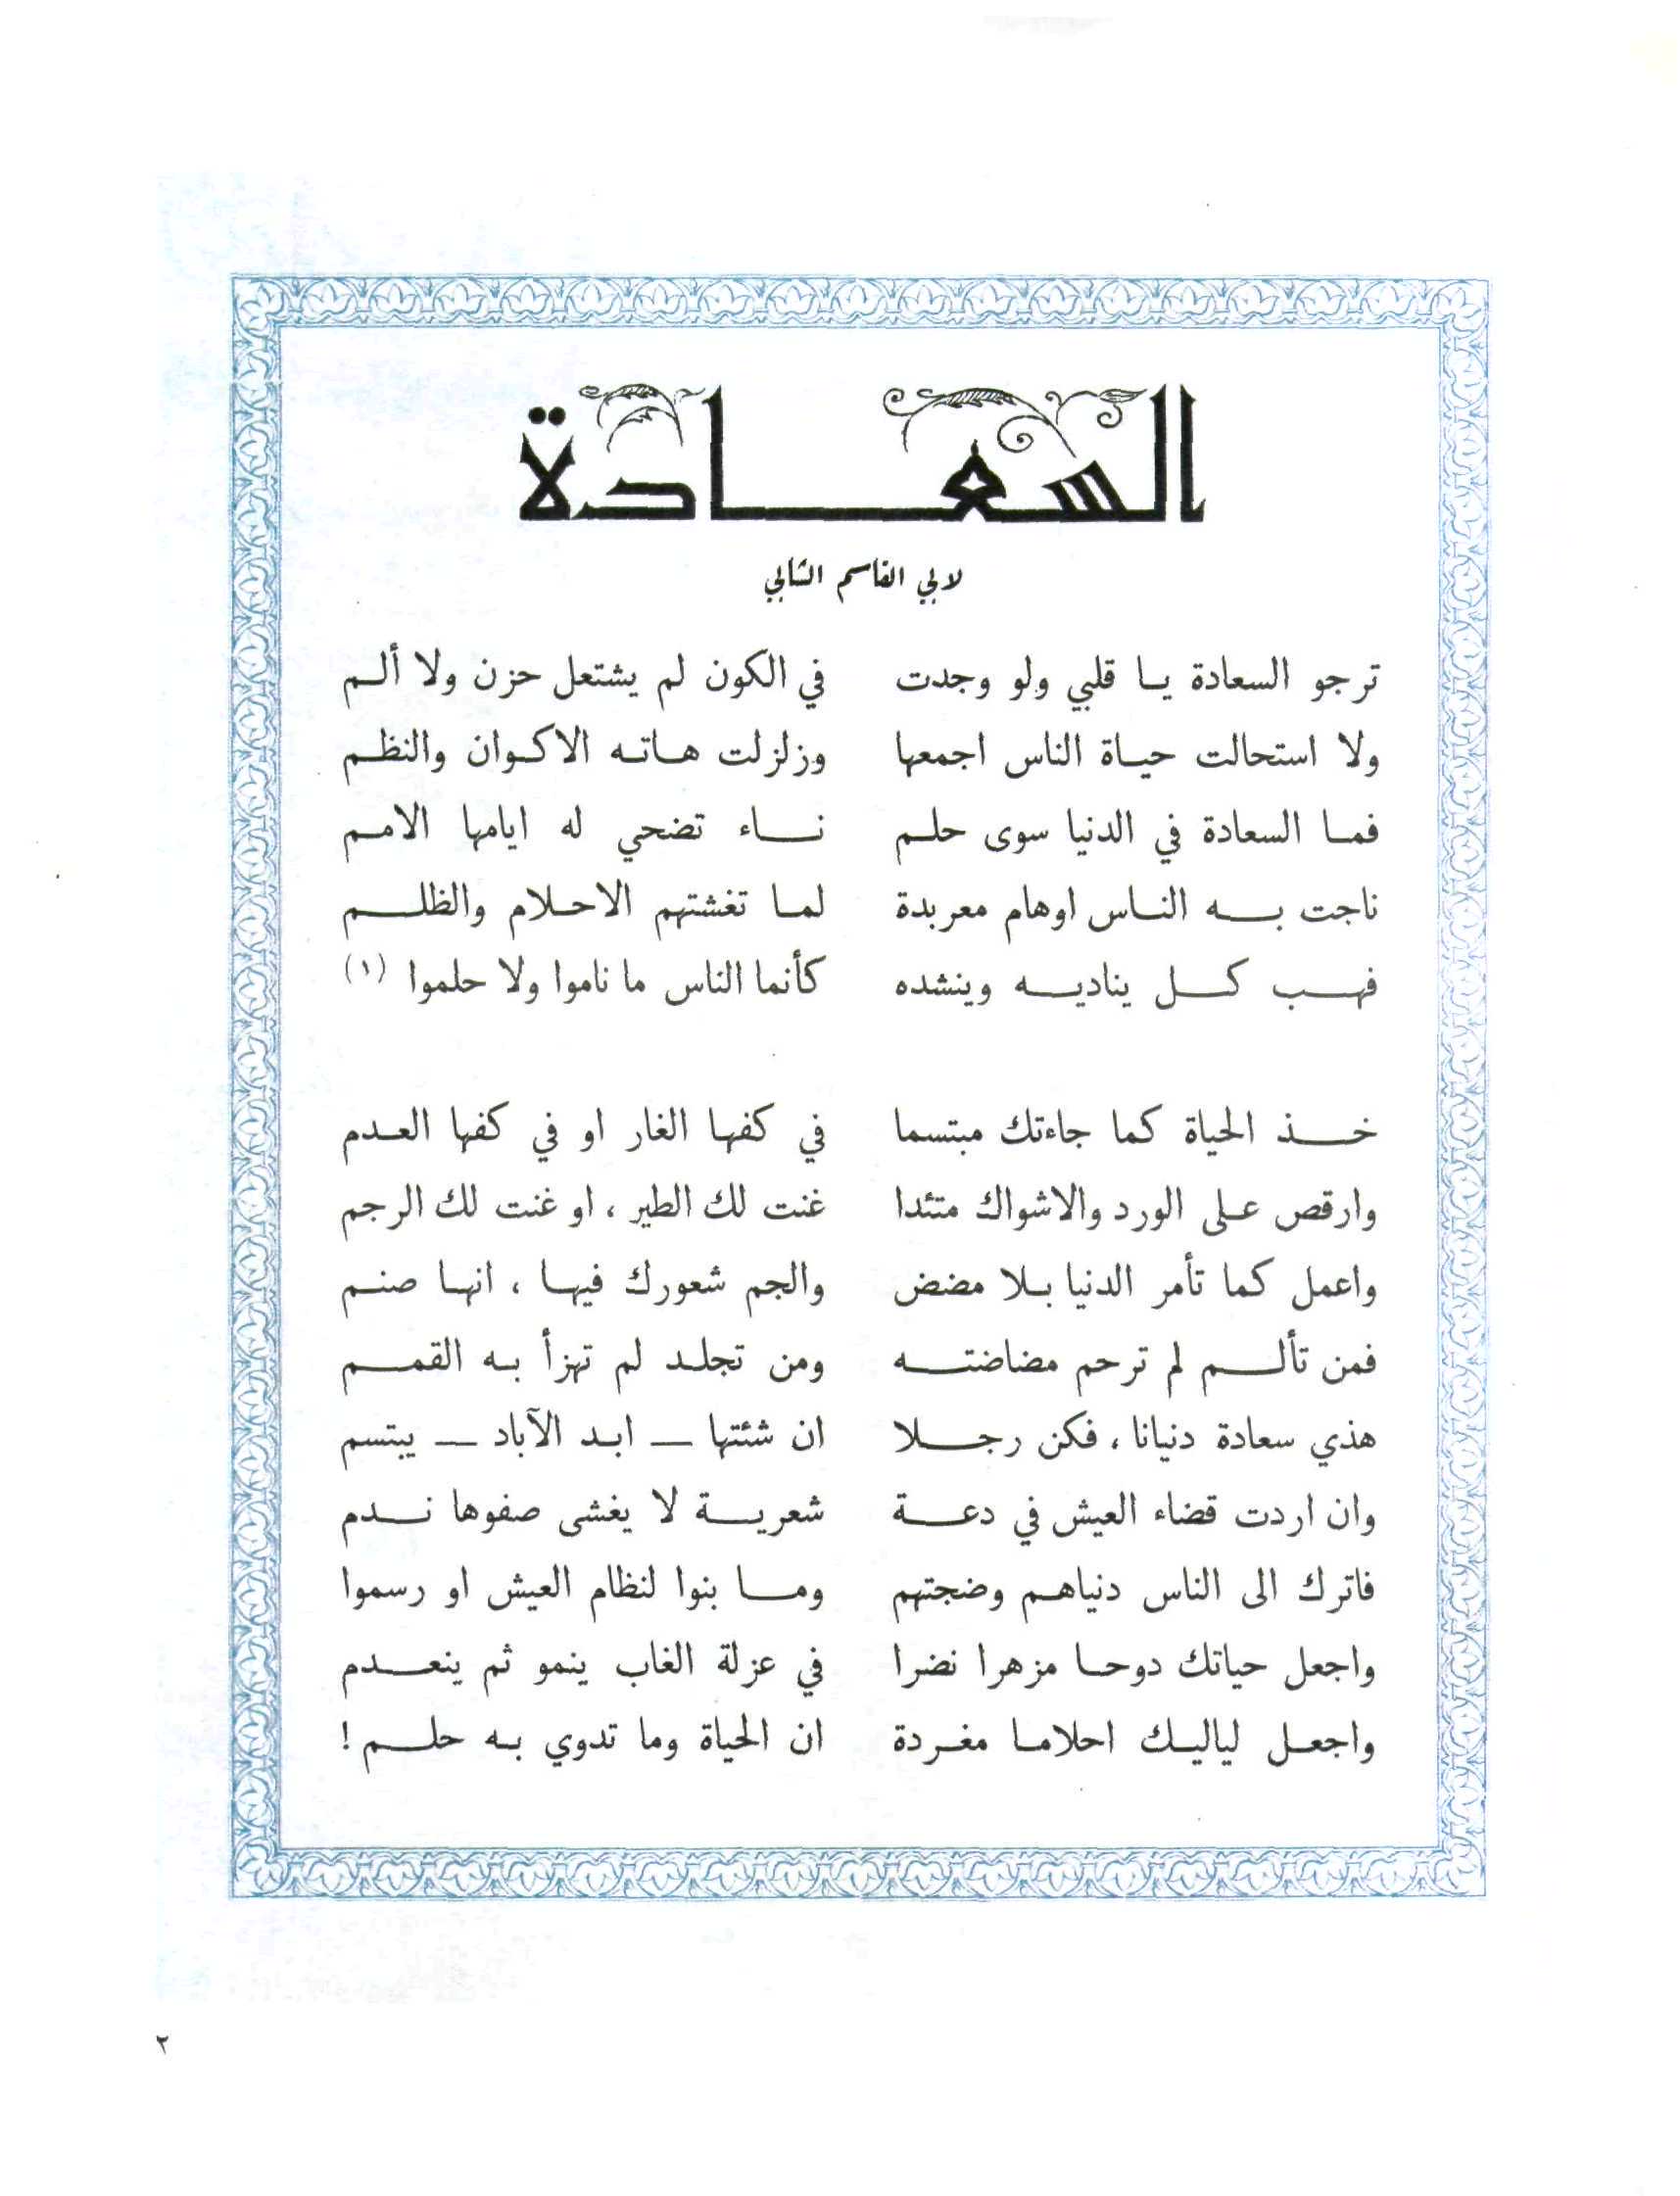 السعادة
لابي القاسم الشابي
ترجو السعادة يا قلبي ولو وجدت في الكون لم يشتعل حزن ولا ألم
ولا استحالت حياة الناس اجمعها وزلزلت هاته الاكوان والنظم
فما السعادة في الدنيا سوى حلم ناء تضحي له ايامها الامم
ناجت به الناس اوهام معربدة لما تغشتهم الاحلام والظلم
فهب كل يناديه وينشده كأنما الناس ما ناموا ولا حلموا (١)
خذ الحياة كما جاءتك مبتسما في كفها الغار او في كفها العدم
وارقص على الورد والاشواك متئدا غنت لك الطير ، او غنت لك الرجم
واعمل كما تأمر الدنيا بلا مضض والجم شعورك فيها ، انها صنم
فمن تألم لم ترحم مضاضته ومن تجلد لم تهزأ به القمم
هذي سعادة دنيانا ، فكن رجلا ان شئتها — ابد الآباد — يبتسم
وان اردت قضاء العيش في دعة شعرية لا يغشى صفوها ندم
فاترك الى الناس دنياهم وضجتهم وما بنوا لنظام العيش او رسموا
واجعل حياتك دوحا مزهرا نضرا في عزلة الغاب ينمو ثم ينعدم
واجعل لياليك احلاما مغردة ان الحياة وما تدوي به حلم !
٢